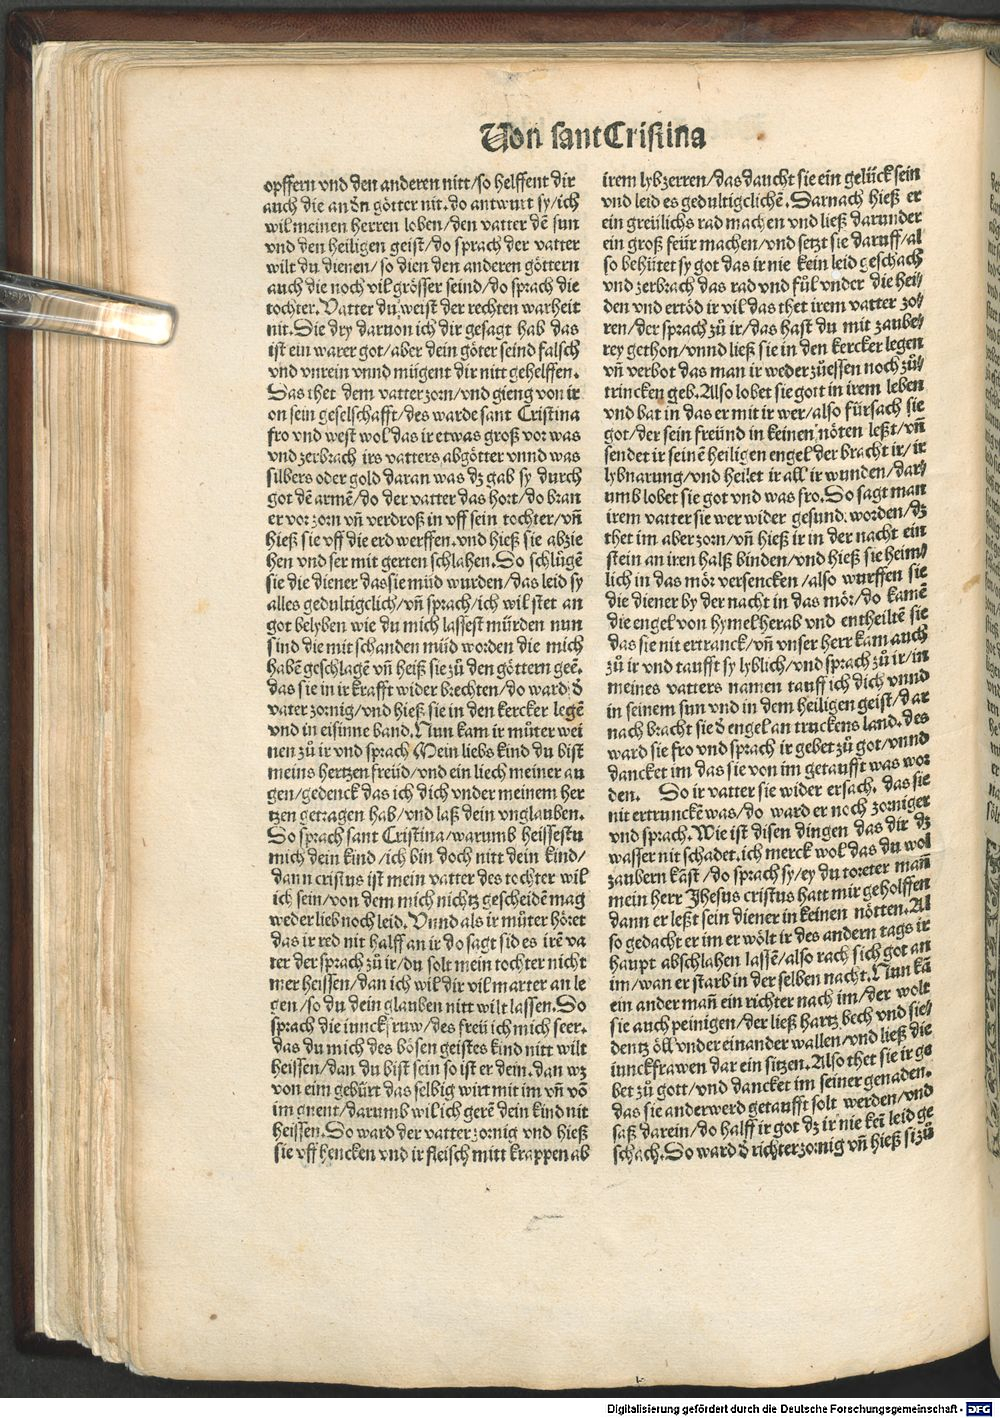 Von sant Cristina
opffern vnd den anderen nitt/so helffent dir
auch die andn̄ götter nit. do antwurt sy/ich
wil meinen herren loben/den vatter dē sun
vnd den heiligen geist/do sprach der vatter
wilt du dienen/so dien den anderen göttern
auch die noch vil grösser seind/do sprach die
tochter. Vatter du weist der rechten warheit
nit. Die dry daruon ich dir gesagt hab das
ist ein warer got/aber dein göter seind falsch
vnd vnrein vnnd mügent dir nitt gehelffen.
Das thet dem vatter zorn/vnd gieng von ir
on sein geselschafft/des warde sant Cristina
fro vnd west wol das ir etwas groß vor was
vnd zerbrach irs vatters abgötter vnnd was
silbers oder gold daran was dz gab sy durch
got dē armē/do der vatter das hort/do bran
er vor zorn vn̄ verdroß in vff sein tochter/vn̄
hieß sie vff die erd werffen. vnd hieß sie abzie
hen vnd ser mit gerten schlahen. Do schlůgē
sie die diener das sie müd wurden/das leid sy
alles gedultigclich/vn̄ sprach/ich wil stet an
got belyben wie du mich lassest mürden nun
sind die mit schanden müd worden die mich
habē geschlagē vn̄ heiß sie zů den göttern geē.
das sie in ir krafft wider brechten/do ward d̄
vater zornig/vnd hieß sie in den kercker legē
vnd in eisinne band. Nun kam ir můter wei
nen zů ir vnd sprach Mein liebs kind du bist
meins hertzen freüd/vnd ein liech meiner au
gen/gedenck das ich dich vnder meinem her
tzen getragen hab/vnd laß dein vnglauben.
Do sprach sant Cristina/warumb heissestu
mich dein kind/ich bin doch nitt dein kind/
dann cristus ist mein vatter des tochter wil
ich sein/von dem mich nichtz gescheidē mag
weder lieb noch leid. Vnnd als ir můter höret
das ir red nit halff an ir do sagt sid es irē va
ter der sprach zů ir/du solt mein tochter nicht
mer heissen/dan ich wil dir vil marter an le
gen/so du dein glauben nitt wilt lassen. Do
sprach die iunckfruw/des freü ich mich seer.
das du mich des bösen geistes kind nitt wilt
heissen/dan du bist sein so ist er dein. dan wz
von eim gebürt das selbig wirt mit im vn̄ vō
im gnent/darumb wil ich gerē dein kind nit
heissen. Do ward der vatter zornig vnd hieß
sie vff hencken vnd ir fleisch mitt krappen ab
irem lyb zerren/das daucht sie ein gelück sein
vnd leid es gedultigclichē. Darnach hieß er
ein greülichs rad machen vnd ließ darunder
ein groß feür machen/vnd setzt sie daruff/al
so behütet sy got das ir nie kein leid geschach
vnd zerbrach das rad vnd fül vnder die hei⸗
den vnd ertöd ir vil das thet irem vatter zo⸗
ren/der sprach zů ir/das hast du mit zaube⸗
rey gethon/vnnd ließ sie in den kercker legen
vn̄ verbot das man ir weder zůessen noch zů⸗
trincken geb. Also lobet sie gott in irem leben
vnd bat in das er mit ir wer/also fürsach sie
got/der sein freünd in keinen nöten leßt/vn̄
sendet ir seinē heiligen engel der bracht ir/ir
lybnarung/vnd heilet ir all ir wunden/dar⸗
umb lobet sie got vnd was fro. Do sagt man
irem vatter sie wer wider gesund worden/dz
thet im aber zorn/vn̄ hieß ir in der nacht ein
stein an iren halß binden/vnd hieß sie heim⸗
lich in das mör versencken/also wurffen sie
die diener by der nacht in das mör/do kamē
die engel von hymel herab vnd entheiltē sie
das sie nit ertranck/vn̄ vnser herr kam auch
zů ir vnd taufft sy lyblich/vnd sprach zů ir/in
meines vatters namen tauff ich dich vnnd
in seinem sun vnd in dem heiligen geist/dar
nach bracht sie d̄ engel an truckens land. des
ward sie fro vnd sprach ir gebet zů got/vnnd
dancket im das sie von im getaufft was wor
den. Do ir vatter sie wider ersach. das sie
nit ertrunckē was/do ward er noch zorniger
vnd sprach. Wie ist disen dingen das dir dz
wasser nit schadet. ich merck wol das du wol
zaubern kāst/do sprach sy/ey du toreter man̄
mein herr Jhesus cristus hatt mir geholffen
dann er leßt sein diener in keinen nötten. Al
so gedacht er im er wölt ir des andern tags ir
haupt abschlahen lassē/also rach sich got an
im/wan er starb in der selben nacht. Nun kā
ein ander man̄ ein richter nach im/der wolt
sie auch peinigen/der ließ hartz bech vnd sie⸗
dentz öll vnder einander wallen/vnd ließ die
iunckfrawen dar ein sitzen. Also thet sie ir ge
bet zů gott/vnd dancket im seiner genaden.
das sie anderwerd getaufft solt werden/vnd
saß darein/do halff ir got dz ir nie keī leid ge
schach. Do ward d̄ richter zornig vn̄ hieß si zů
Digitalisierung gefördert durch die Deutsche Forschungsgemeinschaft - DFG